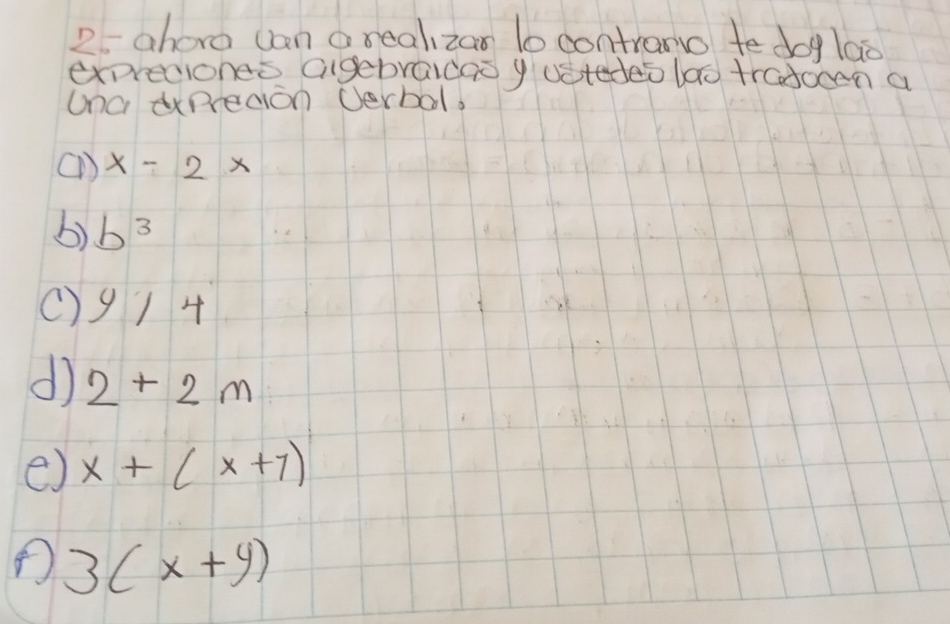 2.- ahora van a realizar lo contrario te doy las
expreciones algebraicas y ustedes las traducen a
una expreción verbal.
a) x - 2 x
b) b³
c) y / 4
d) 2 + 2 m
e) x + ( x + 1)
f) 3 ( x + y)